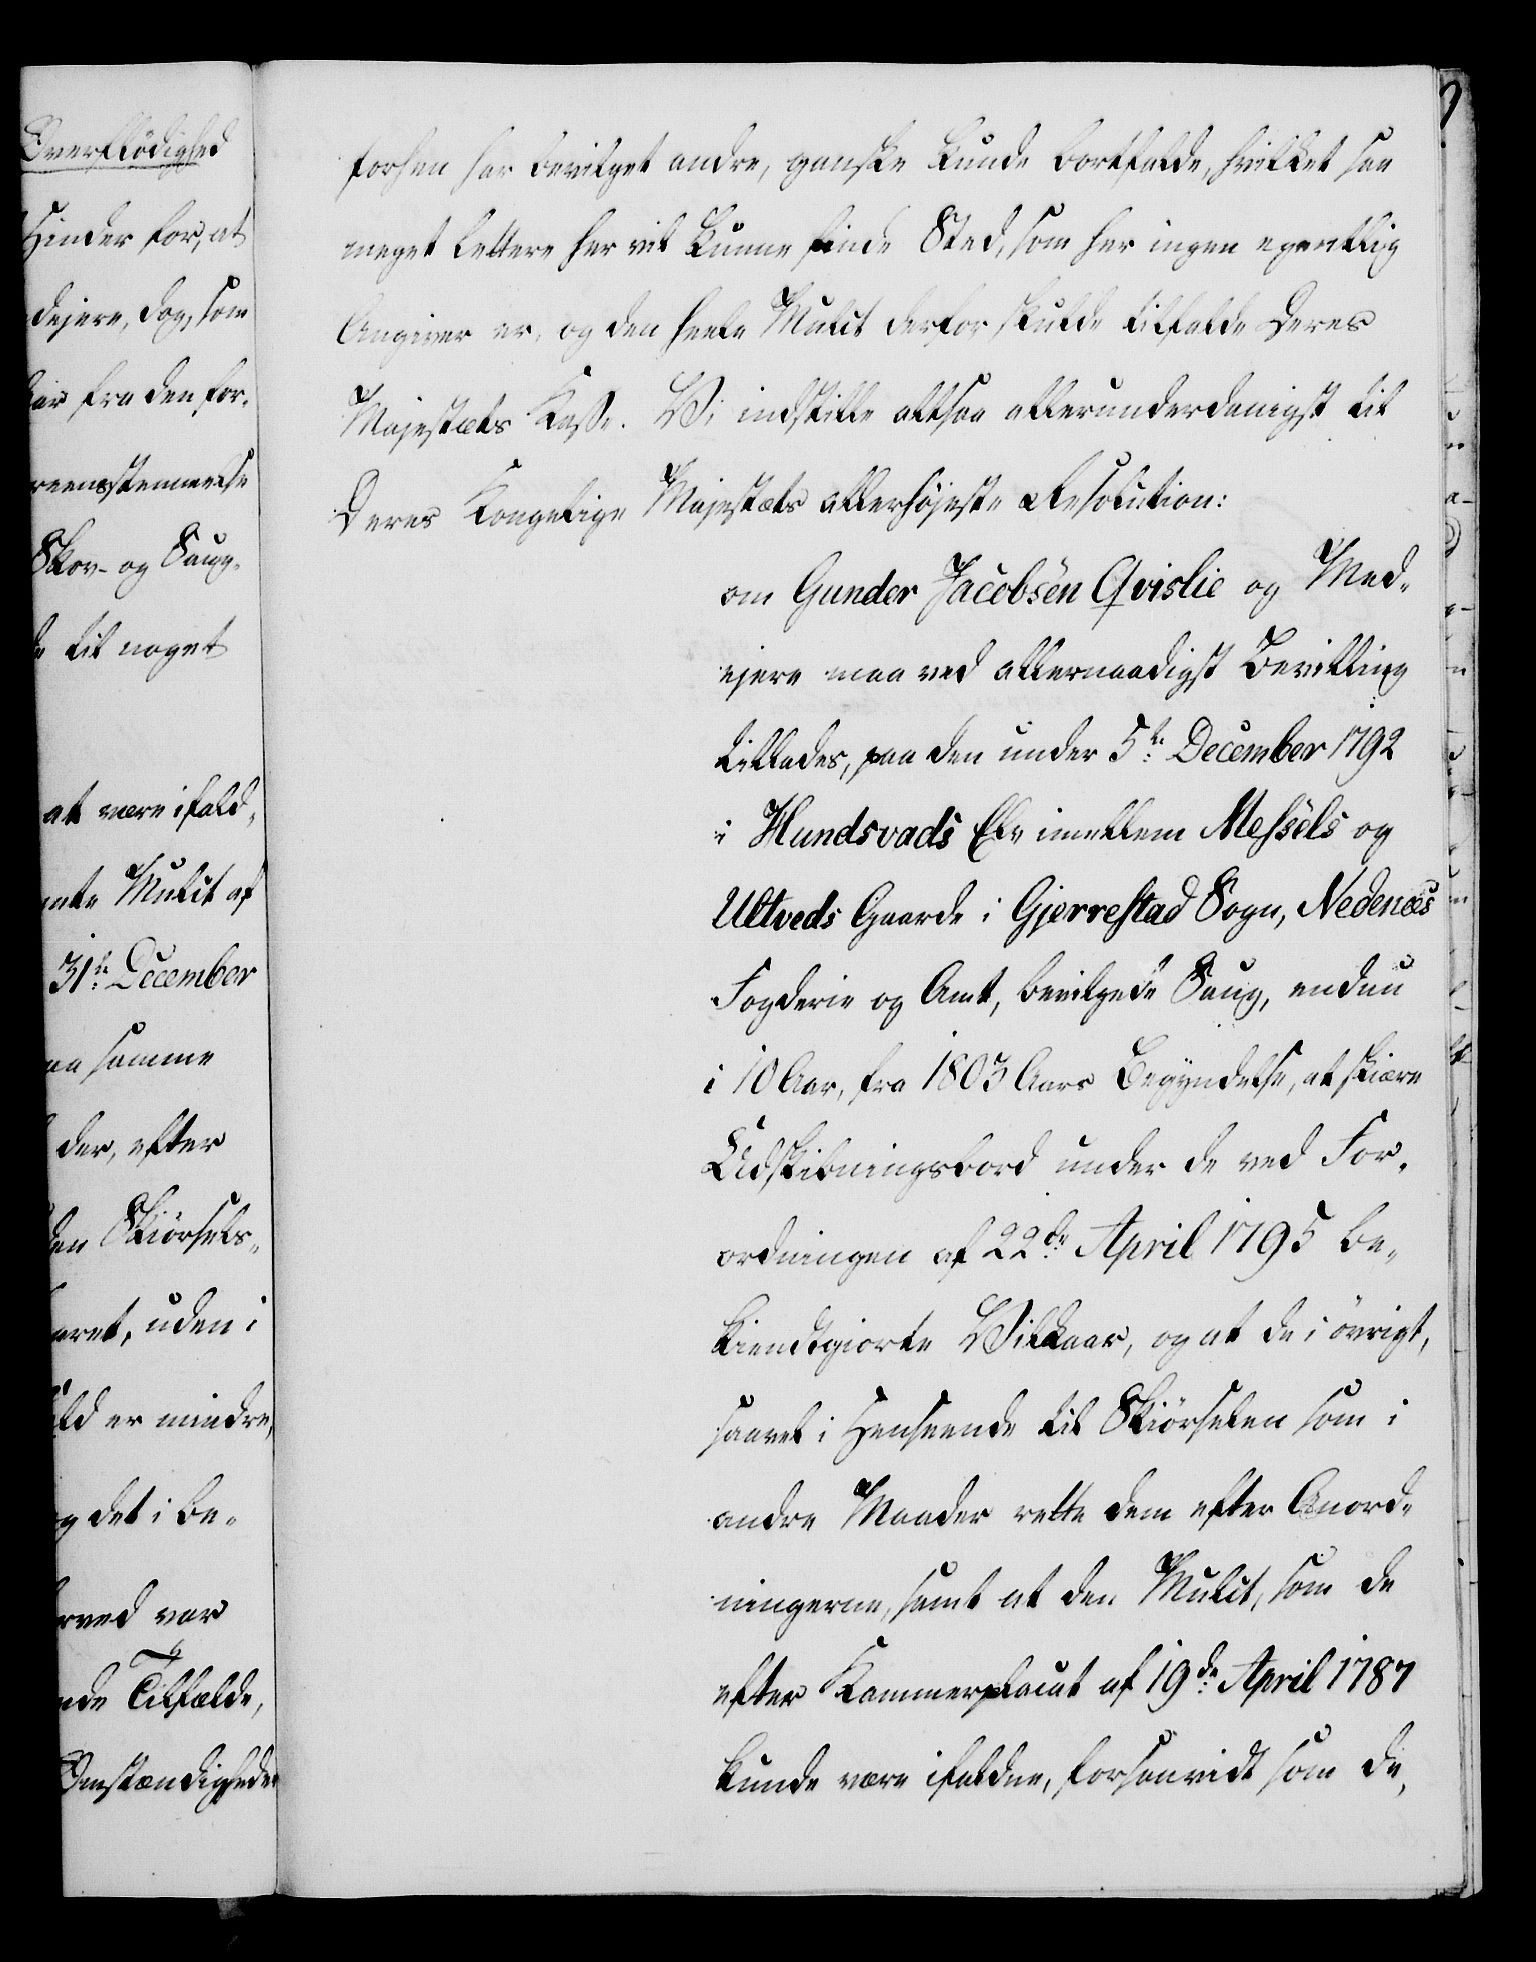 Overflødighed
Hinder for, at
dejere, dog, som
kar fra den for-
reensstemmelse
Skov- og Saug-
de til noget
at være ifald-
mte Mulct af
31te December
aa samme
der, efter
den Skiørsels-
aret, uden i
uld er mindre,
og det i be-
rved var
nde Tilfælde,
Omstændigheder
forhen har bevilget andre, ganske kunde bortfalde, hvilket saa
meget lettere her vil kunne finde Sted, som her ingen egentlig
Angiver er, og den heele Mulct derfor skulde tilfalde Deres
Majestæts Kasse. Vi indstille altsaa allerunderdanigst til
Deres Kongelige Majestæts allerhøjeste Resolution:
om Gunder Jacobsen Qvislie og Med-
ejere maa ved allernaadigst Bevilling
tillades, paa den under 5te December 1792
i Hundsvads Elv imellem Messels og
Ultveds Gaarde i Gjerrestad Sogn, Nedenæs
Fogderie og Amt, bevilgede Saug, endnu
i 10 Aar, fra 1803 Aars Begyndelse, at skiære
Udskibningsbord under de ved For-
ordningen af 22de April 1795 be-
kiendtgiorte Vilkaar, og at de i øvrigt,
saavel i Henseende til Skiørselen som i
andre Maader rette dem efter Anord-
ningerne, samt at den Mulct, som de
efter Kammerplacat af 19de April 1787
kunde være ifaldne, forsaavidt som de,